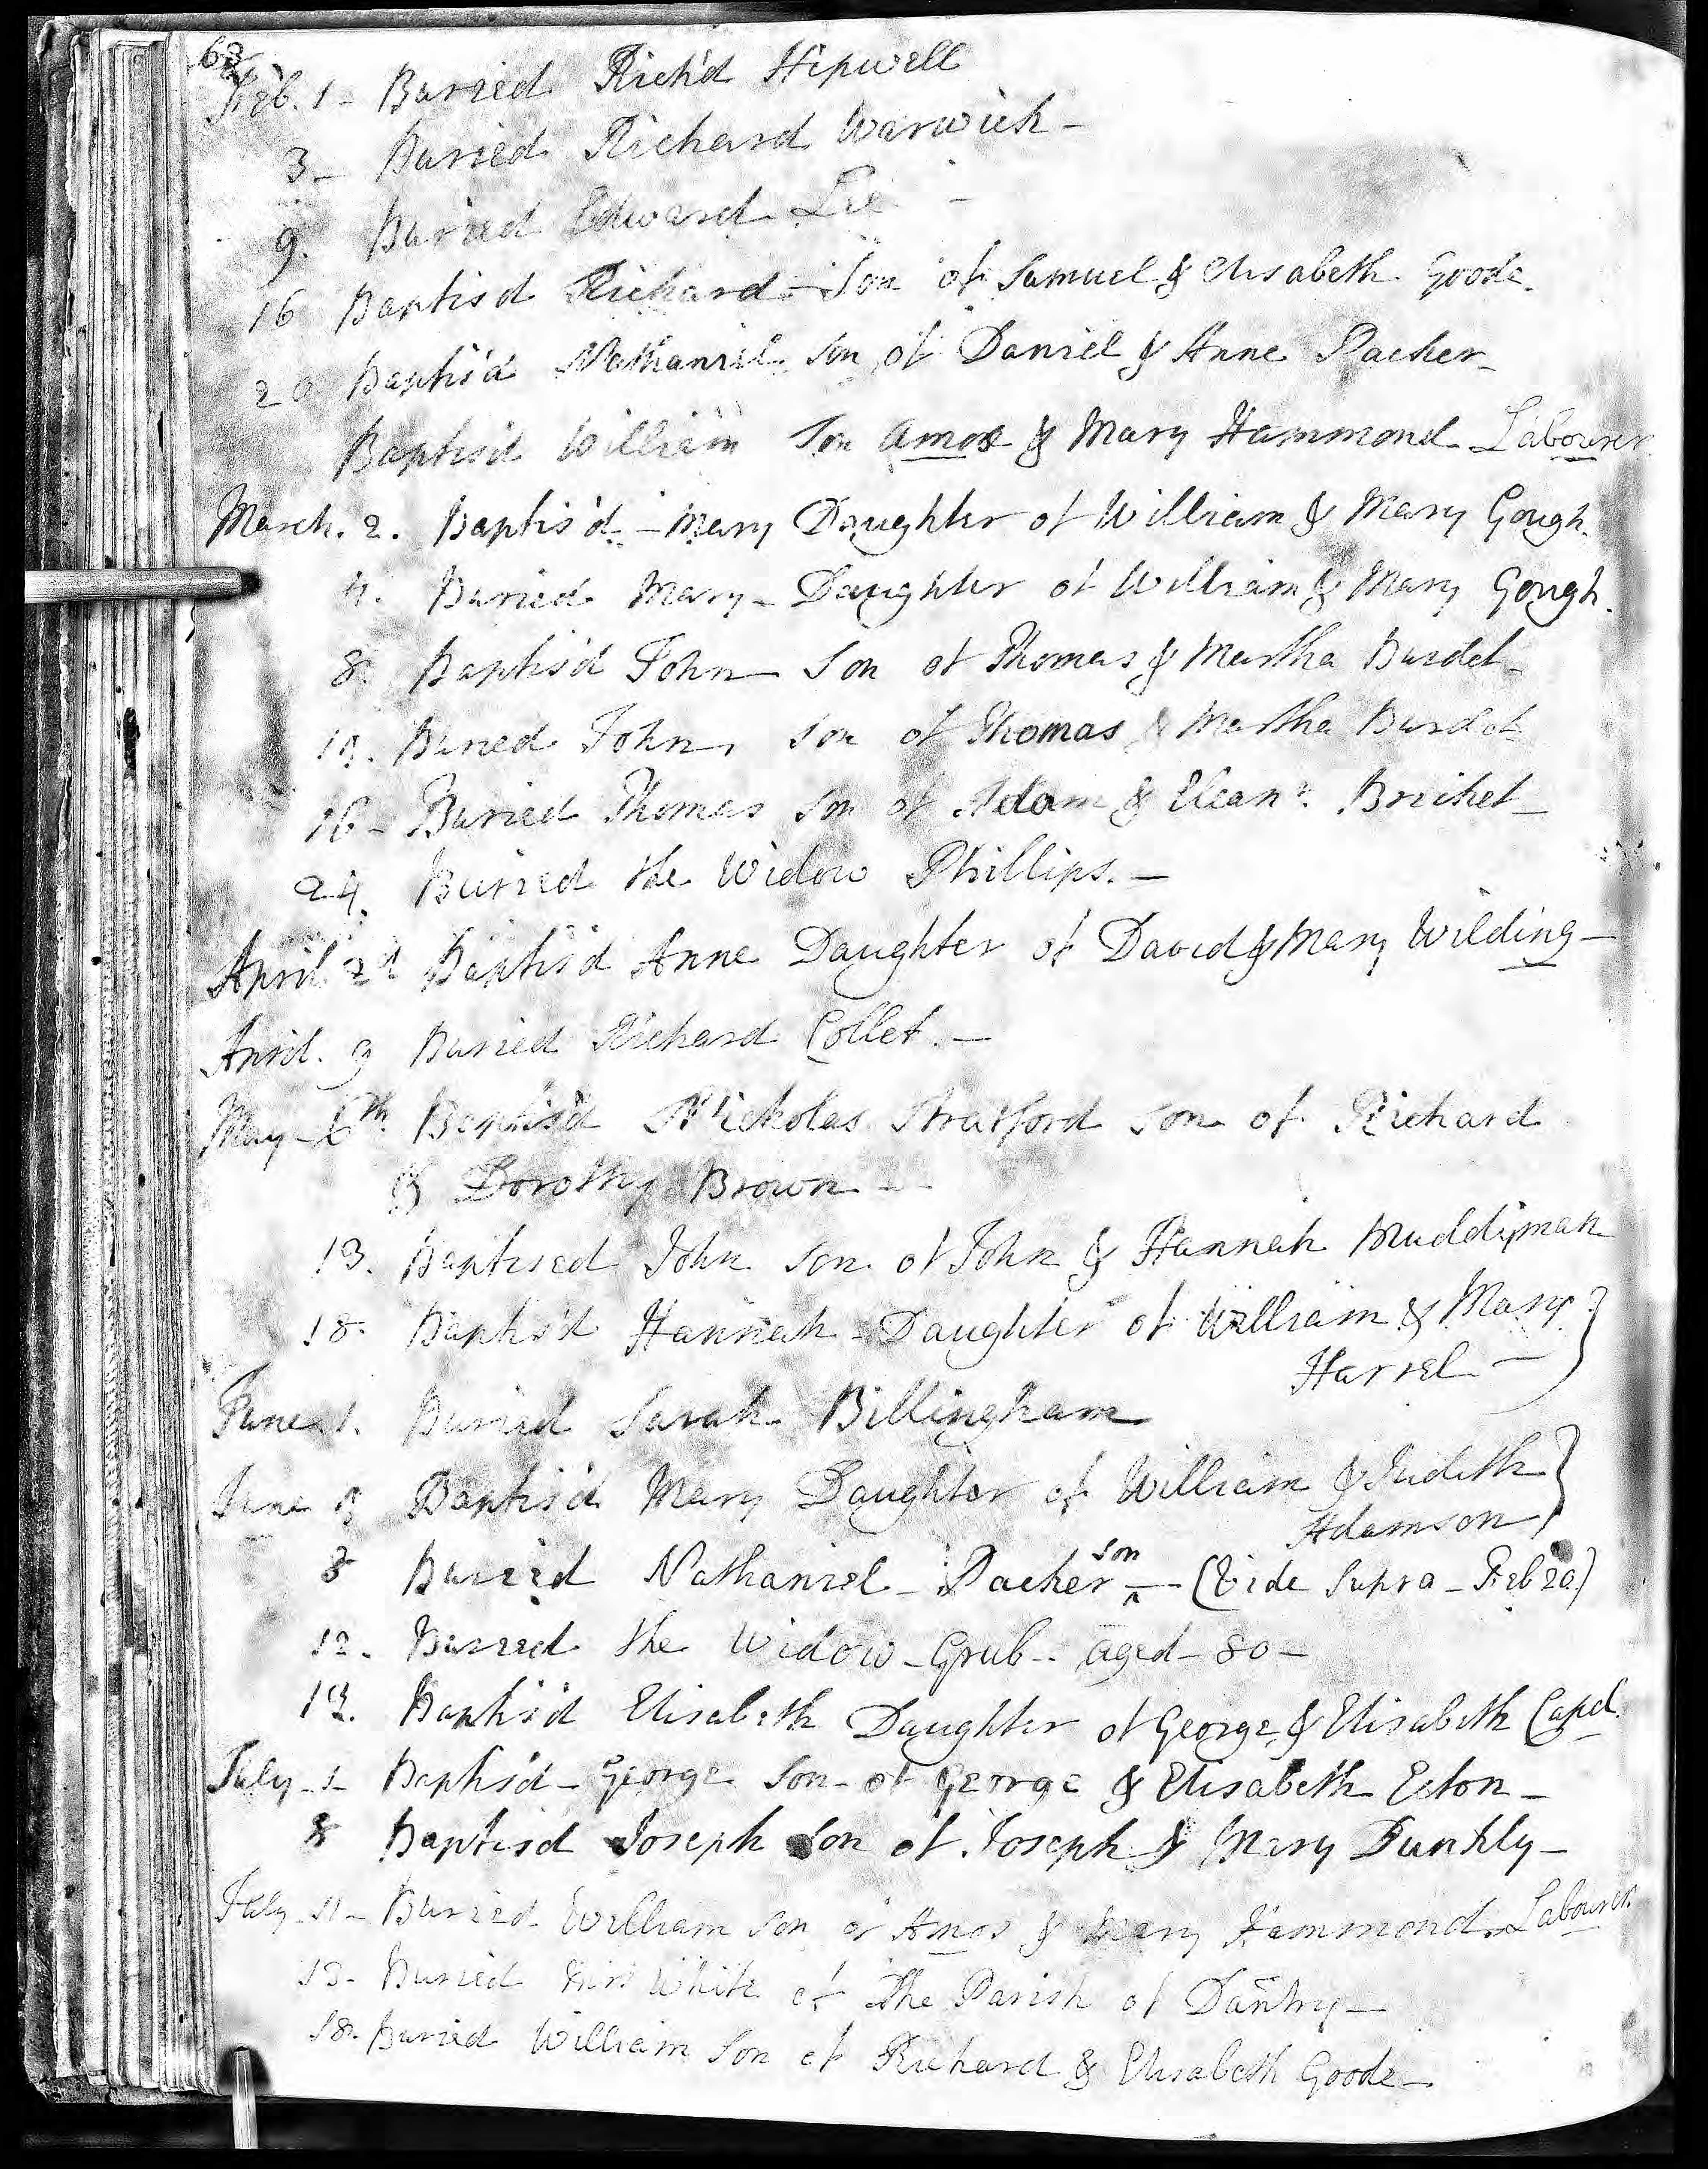 63
Feb. 1 - Buried Rich'd Hipwell
3 - Buried Richard Warwick -
9. Buried Edward Lee -
16 Baptis'd Richard - Son of Samuel & Elisabeth Goode.
20 Baptis'd Nathaniel Son of Daniel & Anne Packer -
Baptis'd William Son Amos & Mary Hammond Labourer
March. 2. Baptis'd - Mary Daughter of William & Mary Gough.
4. Buried Mary - Daughter of William & Mary Gough.
8. Baptis'd John Son of Thomas & Martha Burdet -
Buried John, Son of Thomas & Martha Burdet
16 - Buried Thomas Son of Adam & Elean.r Bricket -
24. Buried the Widow Phillips. -
April 2d Baptis'd Anne Daughter of David & Mary Wilding -
April. 9 Buried Richard Collet. -
May - 6th Baptis'd Nickolas Stratford Son of Richard
& Dorothy Brown -
13. Baptised John Son of John & Hannah Muddiman
18. Baptis'd Hannah - Daughter of William & Mary
Harrel -
June 1. Buried Sarah Billingham
June Baptis'd Mary Daughter of William & Judith
Adamson
8 Buried Nathaniel - Packer son - (Vide Supra - Feb 20.)
12. Buried the Widow - Grub - aged - 80 -
Baptis'd Elisabeth Daughter of George & Elisabeth Capel.
July - 1 - Baptis'd - George Son - of George & Elisabeth Ecton -
8 Baptisd Joseph Son of Joseph & Mary Dunkly -
July - 11 - Buried William Son of Amos & Mary Hammond. Labourer.
13 - Buried White of the Parish of Dantry -
18. Buried William Son of Richard & Elisabeth Goode -